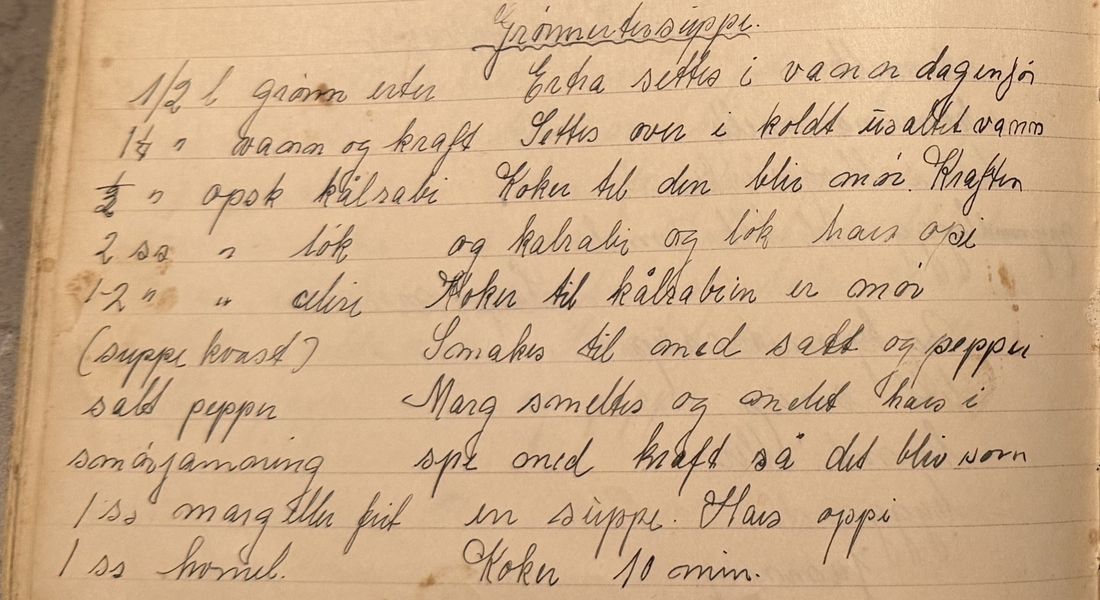 Grönnertersuppe.
1/2 l grönn erter Ertra settes i vann dagenför
1 1/4 " vann og kraft Settes over i koldt usaltet vann
1/2 " opsk kålrabi Koker til den blir mör. Kraften
2 ss " lök og kalrabi og lök haes opi
1-2 " " celiri Koker til kålrabien er mör
(suppe kvast) Smakes til med salt og pepper
salt pepper Marg smeltes og melet haes i
smörjamning spe med kraft så det blir som
1 ss marg eller fett en suppe. Haes oppi
1 ss hvmel. Koker 10 min.